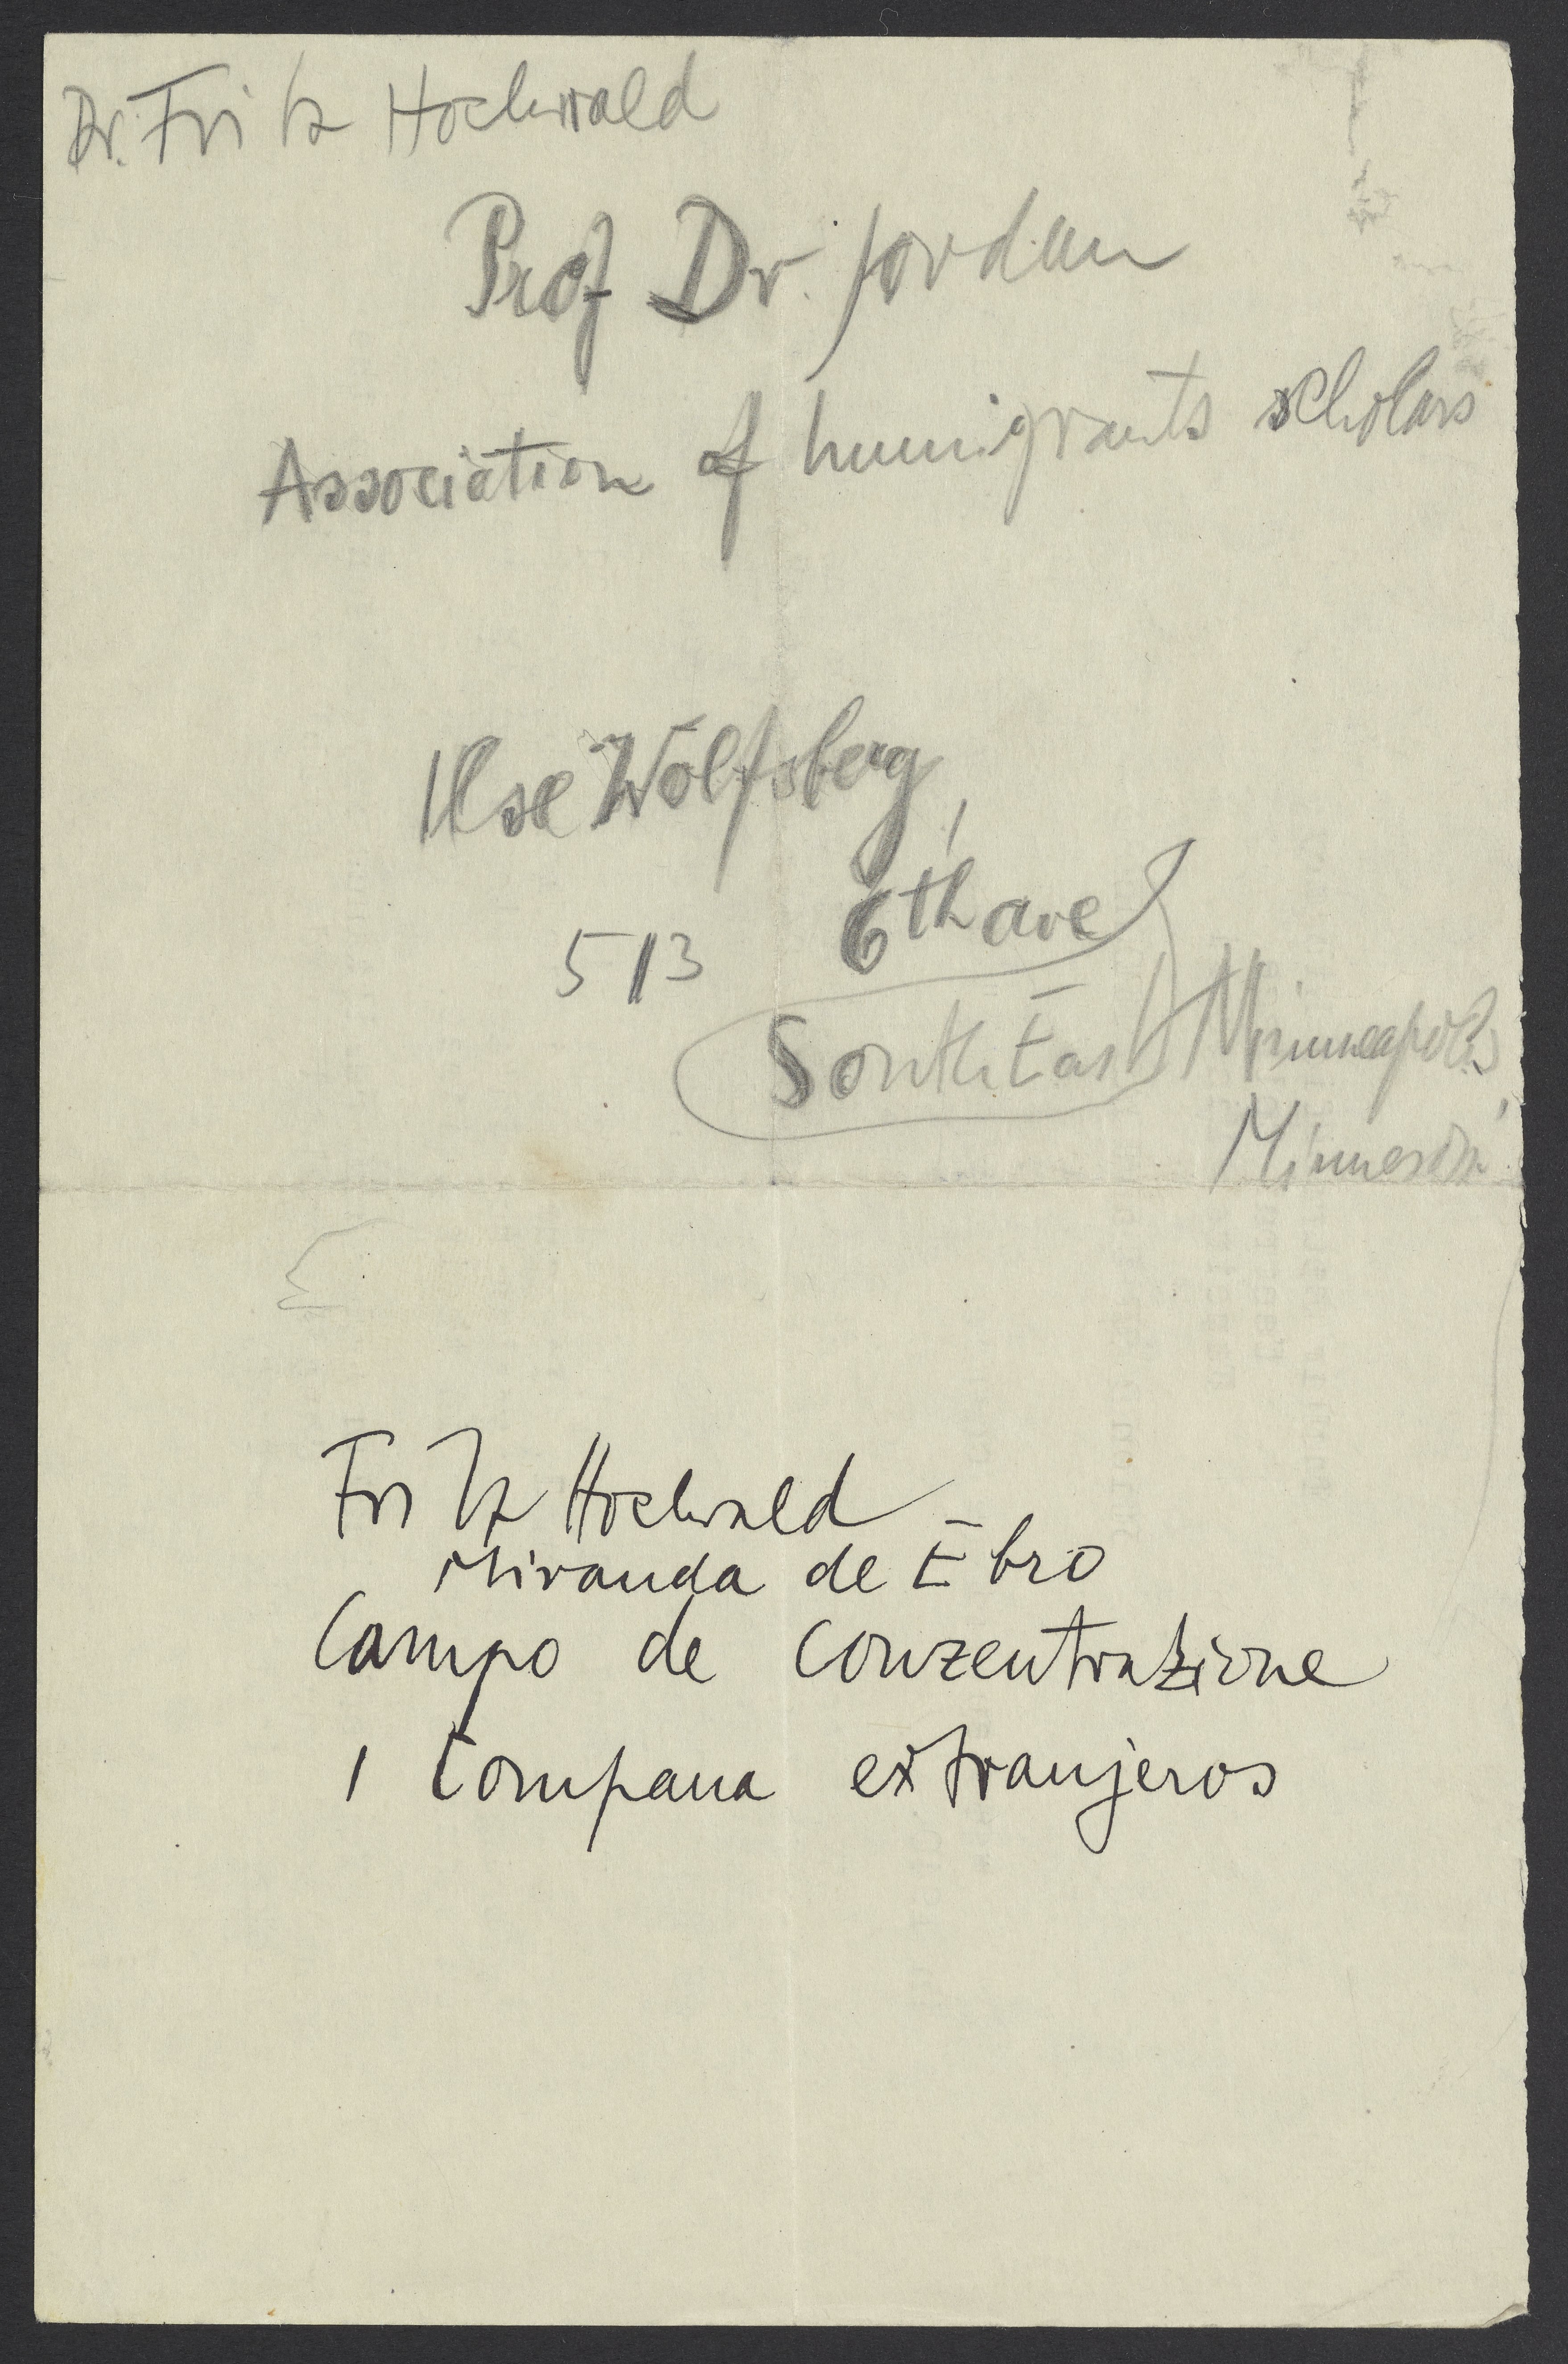 Dr. Fritz Hochwald
Prof Dr. Jordan
Association of Immigrants scholars
Ilse Wolfsberg,
513 6th ave
South East Minneapolis,
Minnesota
Fritz Hochwald
Miranda de Ebro
Campo de Conzentratzione
1 Compana extranjeros